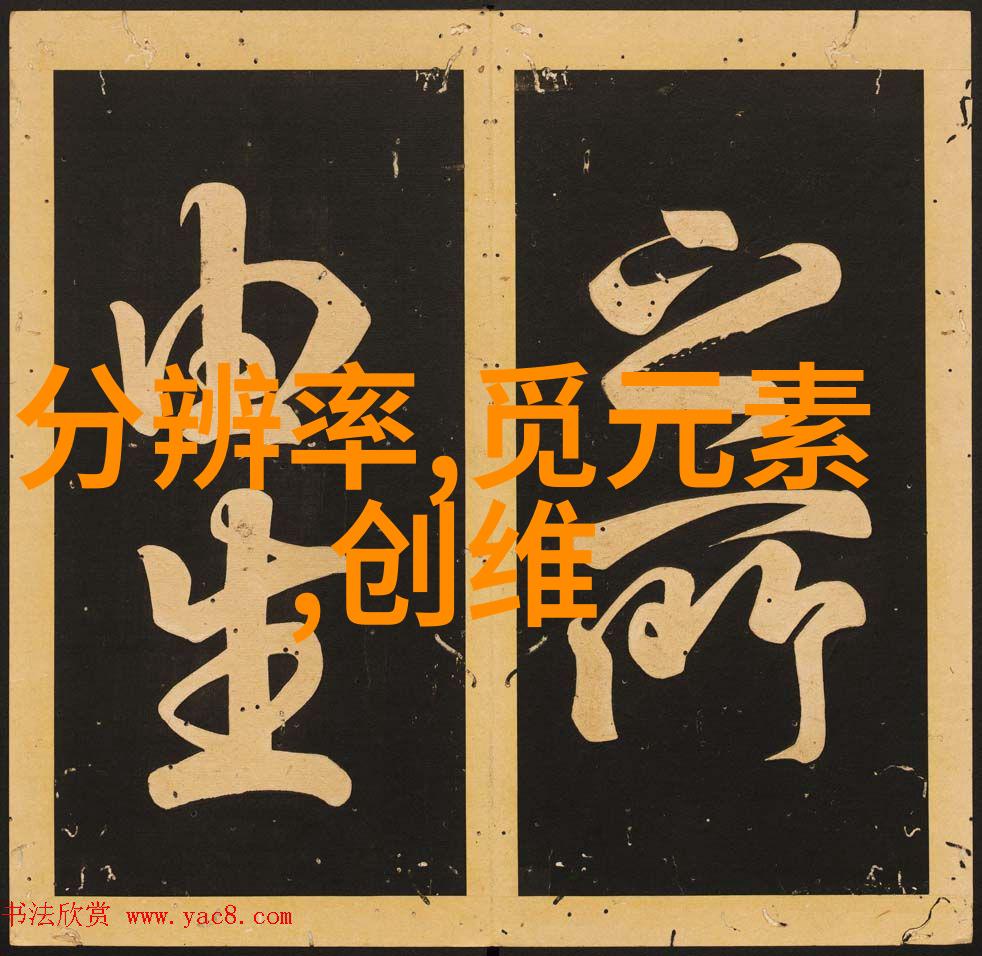 之所
由生
分辨率,觅元素
,创维
书法欣赏 www.yac8.com